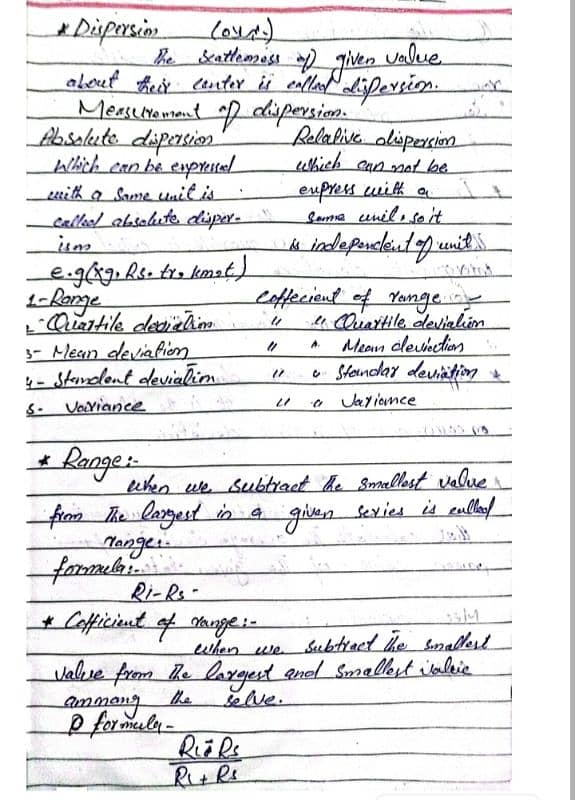 * Dispersion
The Scatterness of given value
about their center is called dispersion.
Measurement of dispersion.
Absolute dispersion Relative dispersion
Which can be expressed which can not be
with a Same unit is express with a
called absolute disper- Same unit, so it
ism is independent of unit
e.g(Kg, Rs. tr, kmet)
1-Range coffecient of range
2-Quartile deviation " " Quartile deviation
3- Mean deviation " " Mean deviection
4- Standent deviation " " Standar deviation
5- Vairiance " " Variance
* Range:-
when we subtract the smallest value
from The largest in a given series is called
range:-
formula:-
Rl-Rs-
* Cofficient of range:-
when we subtract the smallest
value from The largest and smallest value
ammong the selve.
formula-
Rl - Rs
Rl + Rs